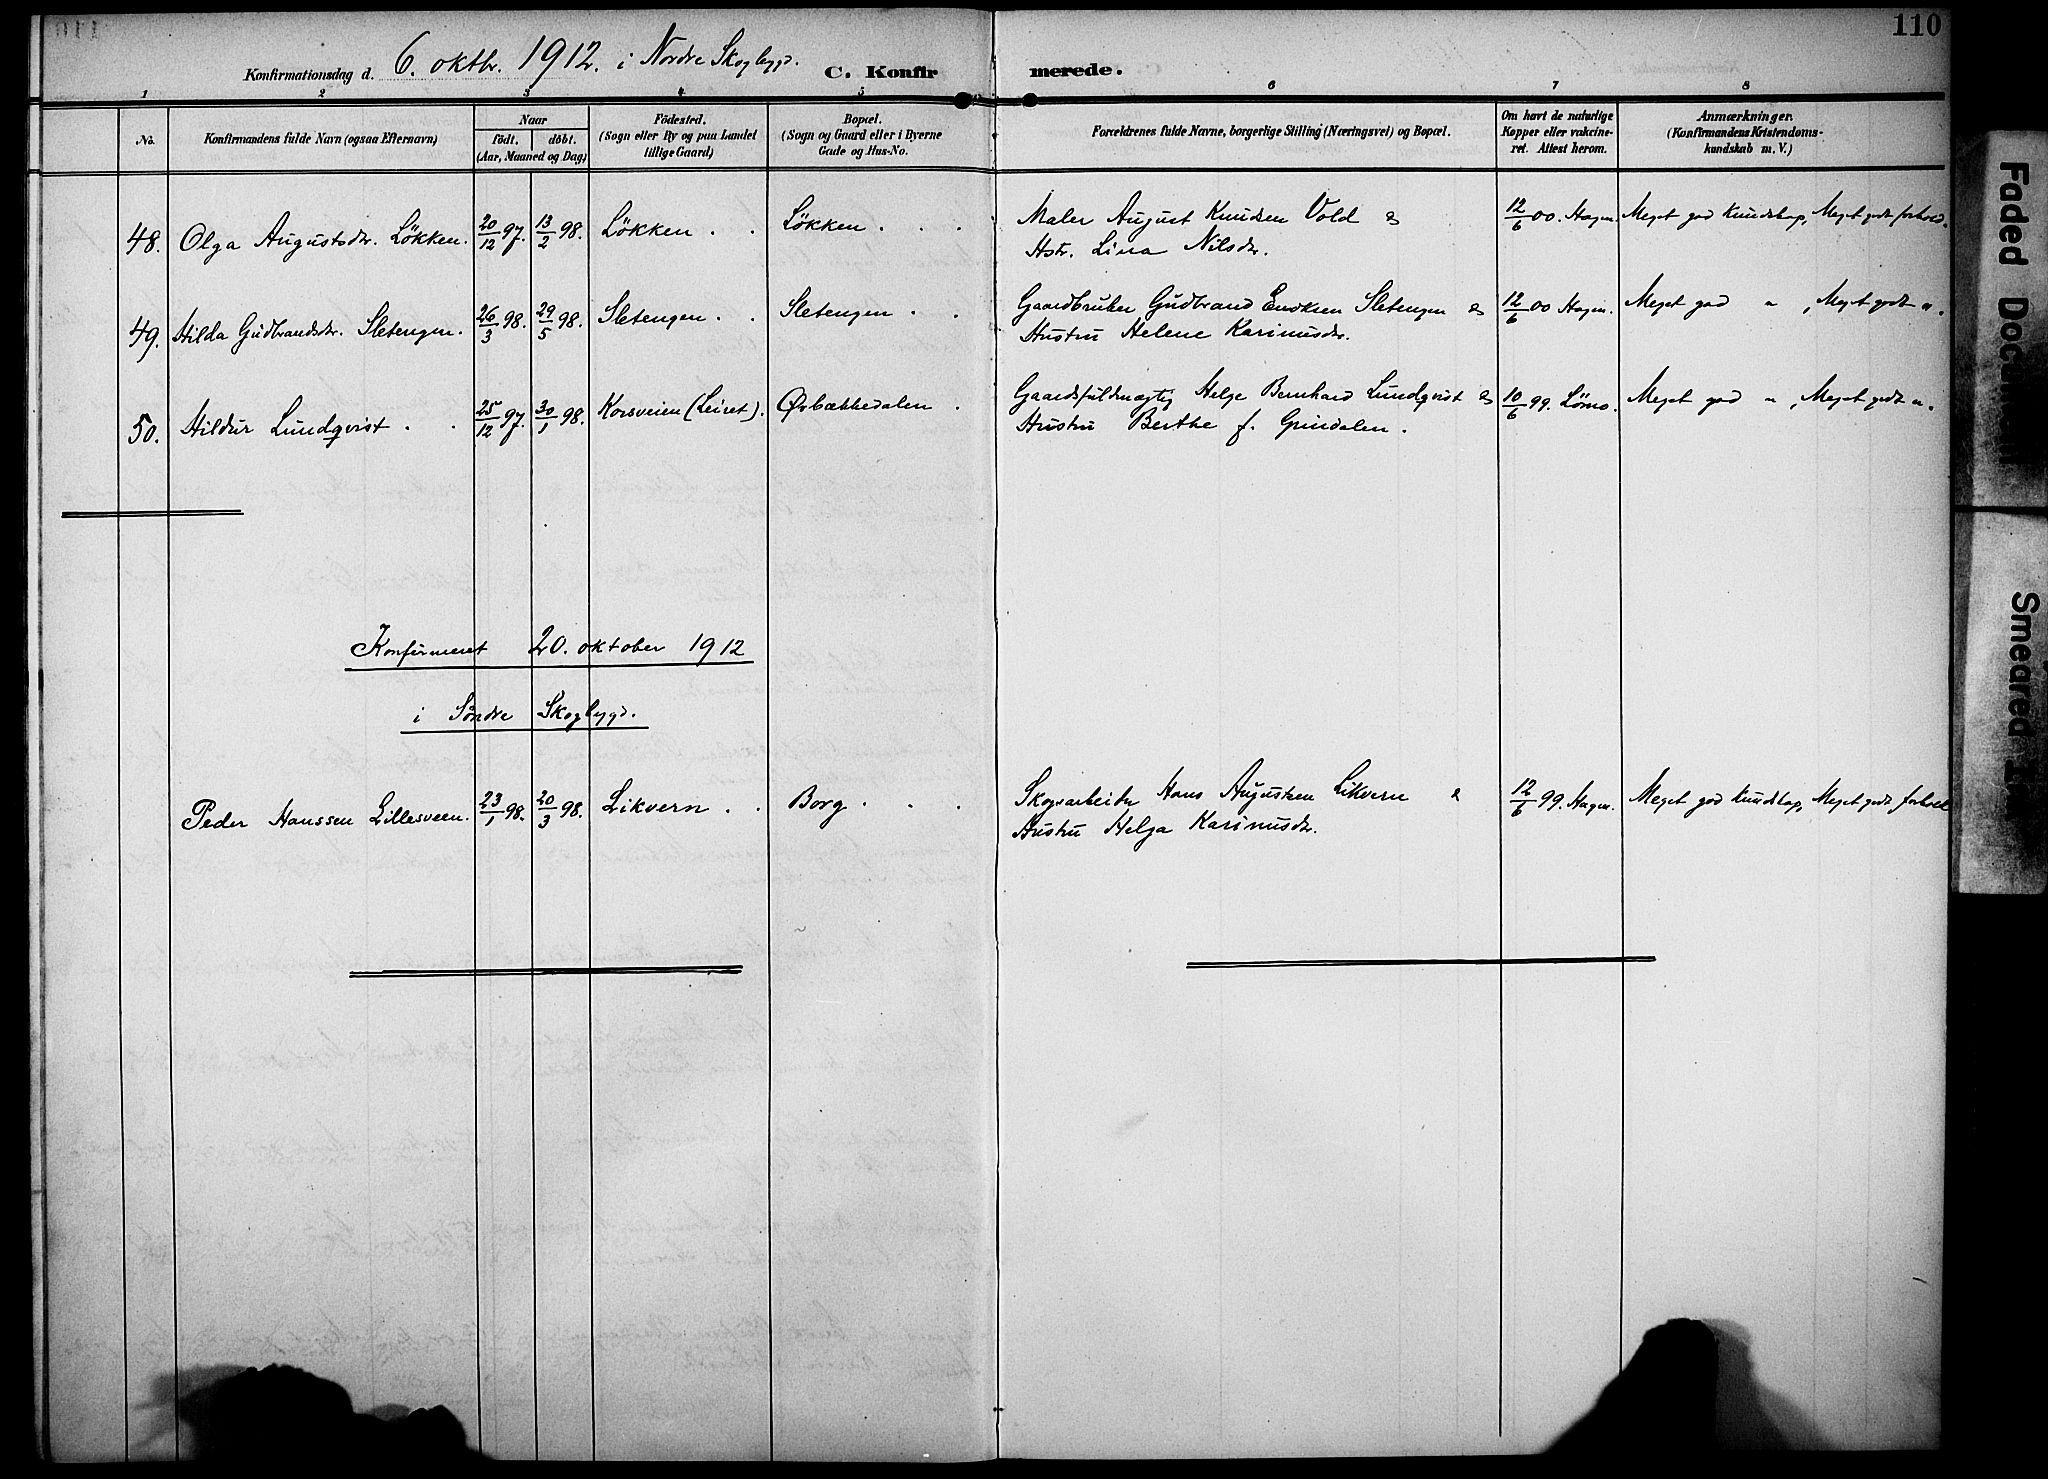 110
Konfirmationsdag d. 6. oktbr. 1912. i Nordre Skogbygd. C. Konfirmerede.
1 2 3 4 5 6 7 8
No.
Konfirmandens fulde Navn (ogsaa Efternavn)
Naar
födt. döbt.
(Aar, Maaned og Dag)
Födested.
(Sogn eller By og paa Landet
tillige Gaard)
Bopæl.
(Sogn og Gaard eller i Byerne
Gade og Hus-No.
Forældrenes fulde Navne, borgerlige Stilling (Næringsvei) og Bopæl.
Om havt de naturlige
Kopper eller vakcine-
ret. Attest herom.
Anmærkninger.
(Konfirmandens Kristendoms-
kundskab m. V.)
48. Olga Augustsdr. Løkken. 20/12 97. 13/2 98. Løkken . . Løkken . . . Maler August Knudsen Vold & 12/6 00. Hagen. Meget god kundskap, Meget godt forhold.
Hstr. Lina Nilsdr.
49. Hilda Gudbrandsdr. Sletengen. 26/3 98. 29/5 98. Sletengen . . Sletengen . . Gaardbruker Gudbrand Eriksen Sletengen & 12/6 00 Hagen. Meget god " , Meget godt ".
Hustru Helene Karinusdr.
50. Hildur Lundqvist . . 25/12 97. 30/1 98. Korsveien (Leiret). Ørbækkedalen . Gaardsfuldmægtig Helge Bernhard Lundqvist & 10/6 99. Lömo. Meget god " , Meget godt ".
Hustru Berthe f. Grindalen .
Konfirmeret 20. oktober 1912
i Søndre Skogbygd.
Peder Hanssen Lillesveen. 23/1 98. 20/3 98. Likvern . . Borg . . . Skogsarbeider Hans Augustsen Likvern & 12/6 99. Hagen. Meget god kundskap, Meget godt forhold
Hustru Helga Karinusdr.
Faded Document
Smeared